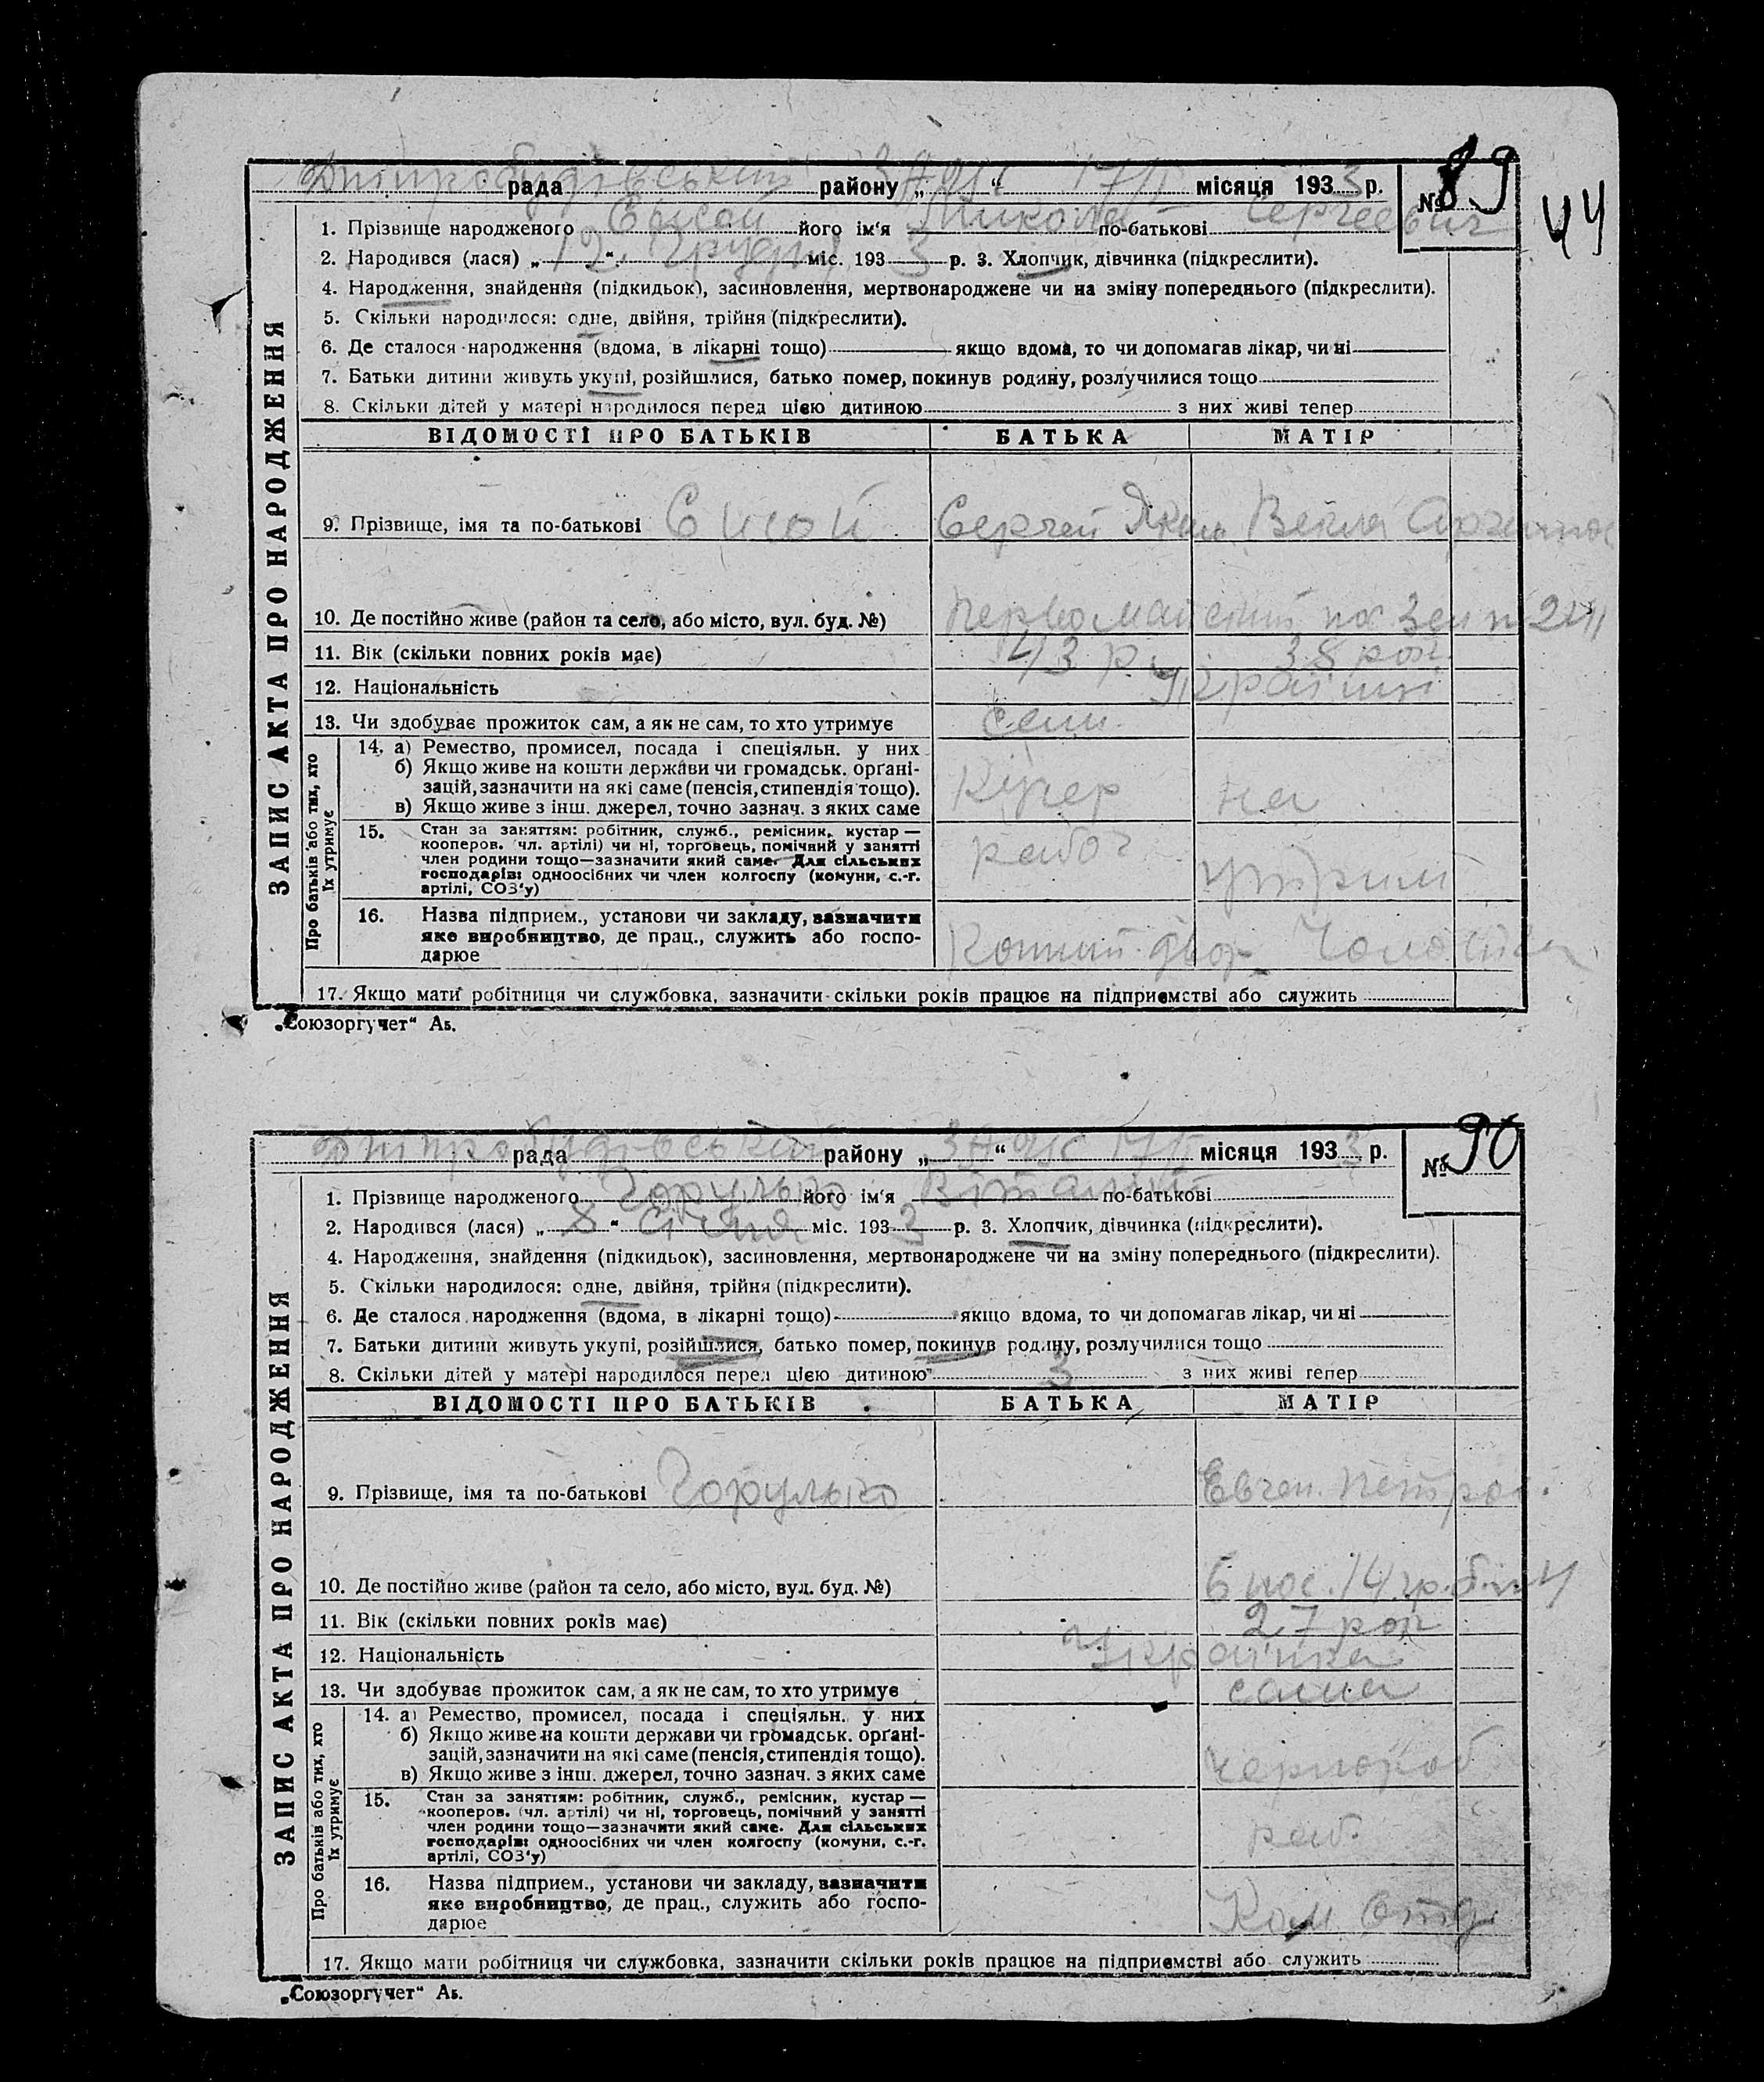 Дніпробудівський ЗАГС 17/I
рада району „ “ місяця 1933 р. № 89
44
1. Прізвище народженого його ім'я Микола по-батькові Сергеевич
2. Народився (лася) „12“ Грудня міс. 1933 р. 3. Хлопчик, дівчинка (підкреслити).
4. Народження, знайдення (підкидьок), засиновлення, мертвонароджене чи на зміну попереднього (підкреслити).
5. Скільки народилося: одне, двійня, трійня (підкреслити).
6. Де сталося народження (вдома, в лікарні тощо) якщо вдома, то чи допомагав лікар, чи ні
7. Батьки дитини живуть укупі, розійшлися, батько помер, покинув родину, розлучилися тощо
8. Скільки дітей у матері народилося перед цією дитиною з них живі тепер
ЗАПИС АКТА ПРО НАРОДЖЕННЯ
ВІДОМОСТІ ПРО БАТЬКІВ БАТЬКА МАТІР
9. Прізвище, імя та по-батькові Сергей
10. Де постійно живе (район та село, або місто, вул. буд. №) Первомайский
11. Вік (скільки повних років має) 43 р. 38 рок
12. Національність Українці
13. Чи здобуває прожиток сам, а як не сам, то хто утримує сам
Про батьків або тих, хто їх утримує
14. а) Ремество, промисел, посада і спеціяльн. у них
б) Якщо живе на кошти держави чи громадськ. орґані-
зацій, зазначити на які саме (пенсія, стипендія тощо). Кучер на
в) Якщо живе з інш. джерел, точно зазнач. з яких саме
15. Стан за заняттям: робітник, служб., ремісник, кустар —
кооперов. (чл. артілі) чи ні, торговець, помічний у занятті
член родини тощо—зазначити який саме. Для сільських
господарів: одноосібних чи член колгоспу (комуни, с.-г.
артілі, СОЗ'у) рабоч утрим
16. Назва підприєм., установи чи закладу, зазначити
яке виробництво, де прац., служить або госпо-
дарює Конний двор Чоловіка
17. Якщо мати робітниця чи службовка, зазначити скільки років працює на підприємстві або служить
„Союзоргучет“ Аѣ.
Дніпробудівський ЗАГС 17/I
рада району „ “ місяця 1933 р. № 90
1. Прізвище народженого Горулько його ім'я Віталий по-батькові
2. Народився (лася) „8“ Січня міс. 1933 р. 3. Хлопчик, дівчинка (підкреслити).
4. Народження, знайдення (підкидьок), засиновлення, мертвонароджене чи на зміну попереднього (підкреслити).
5. Скільки народилося: одне, двійня, трійня (підкреслити).
6. Де сталося народження (вдома, в лікарні тощо) якщо вдома, то чи допомагав лікар, чи ні
7. Батьки дитини живуть укупі, розійшлися, батько помер, покинув родину, розлучилися тощо
8. Скільки дітей у матері народилося перед цією дитиною 3 з них живі тепер
ЗАПИС АКТА ПРО НАРОДЖЕННЯ
ВІДОМОСТІ ПРО БАТЬКІВ БАТЬКА МАТІР
9. Прізвище, імя та по-батькові Горулько Евген. Петров.
10. Де постійно живе (район та село, або місто, вул. буд. №) 6 пос.
11. Вік (скільки повних років має) 27 рок
12. Національність Українка
13. Чи здобуває прожиток сам, а як не сам, то хто утримує сама
Про батьків або тих, хто їх утримує
14. а) Ремество, промисел, посада і спеціяльн. у них
б) Якщо живе на кошти держави чи громадськ. орґані-
зацій, зазначити на які саме (пенсія, стипендія тощо). чорнороб
в) Якщо живе з інш. джерел, точно зазнач. з яких саме
15. Стан за заняттям: робітник, служб., ремісник, кустар —
кооперов. (чл. артілі) чи ні, торговець, помічний у занятті
член родини тощо—зазначити який саме. Для сільських
господарів: одноосібних чи член колгоспу (комуни, с.-г.
артілі, СОЗ'у) раб.
16. Назва підприєм., установи чи закладу, зазначити
яке виробництво, де прац., служить або госпо-
дарює Ком. отд.
17. Якщо мати робітниця чи службовка, зазначити скільки років працює на підприємстві або служить
„Союзоргучет“ Аѣ.